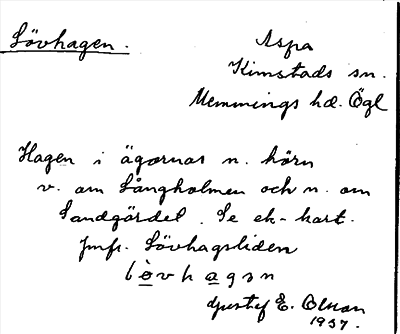 Lövhagen.
Aspa
Kimstads sn.
Memmings hd. Ögl
Hagen i ägornas n. hörn
v. om Långholmen och n. om
Sandgärdet. Se ek-kart.
Jmfr. Lövhagsliden
lèvhagən
Gustaf E. Olsson
1937.